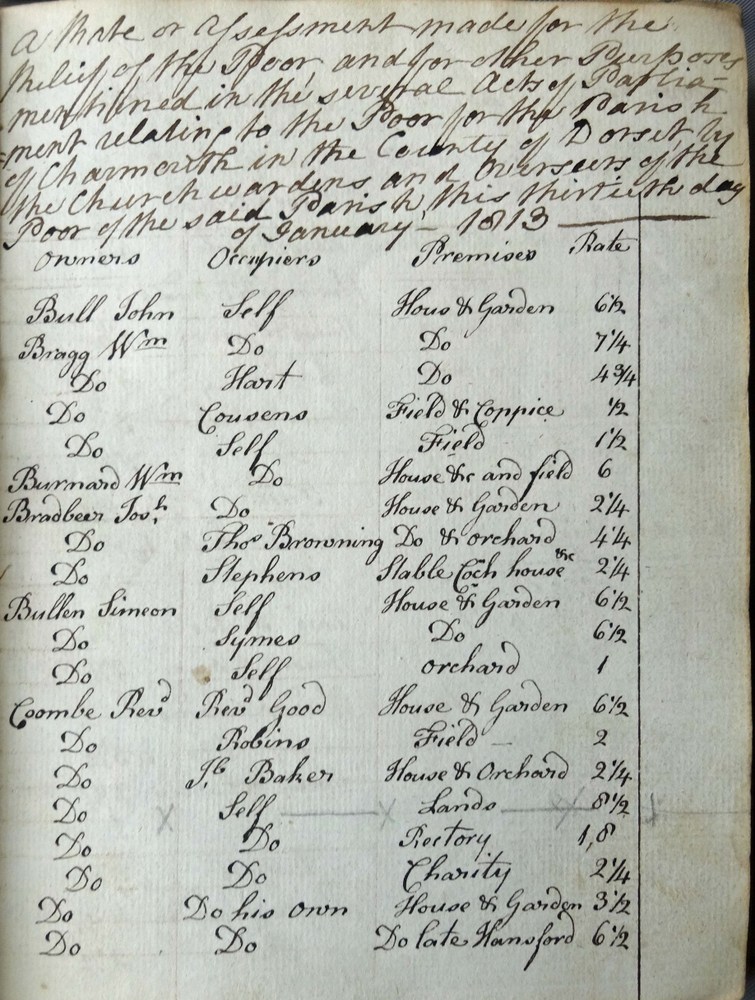 a Rate or Assessment made for the
Relief of the Poor and for other Purposes
mentioned in the several Acts of Parlia-
=ment relating to the Poor for the Parish
of Charmouth in the County of Dorset, by
the Churchwardens and Overseers of the
Poor of the said Parish, this thirtieth day
of January – 1813
Owners Occupiers Premises Rate
Bull John Self Hous & Garden 6½
Bragg Wm Do Do 7¼
Do Hart Do 4¾
Do Cousens Field & Coppice ½
Do Self Field 1½
Burnard Wm Do House &c and field 6
Bradbeer Josh. Do House & Garden 2¼
Do Thos Browning Do & orchard 4¼
Do Stephens Stable Coch house &c 2¼
Bullen Simeon Self House & Garden 6½
Do Symes Do 6½
Do Self orchard 1
Coombe Revd Revd Good House & Garden 6½
Do Robins Field – 2
Do Jb. Baker House & Orchard 2¼
Do Self Lands 8½
Do Do Rectory 1,8
Do Do Charity 2¼
Do Do his own House & Garden 3½
Do Do Do late Hansford 6½